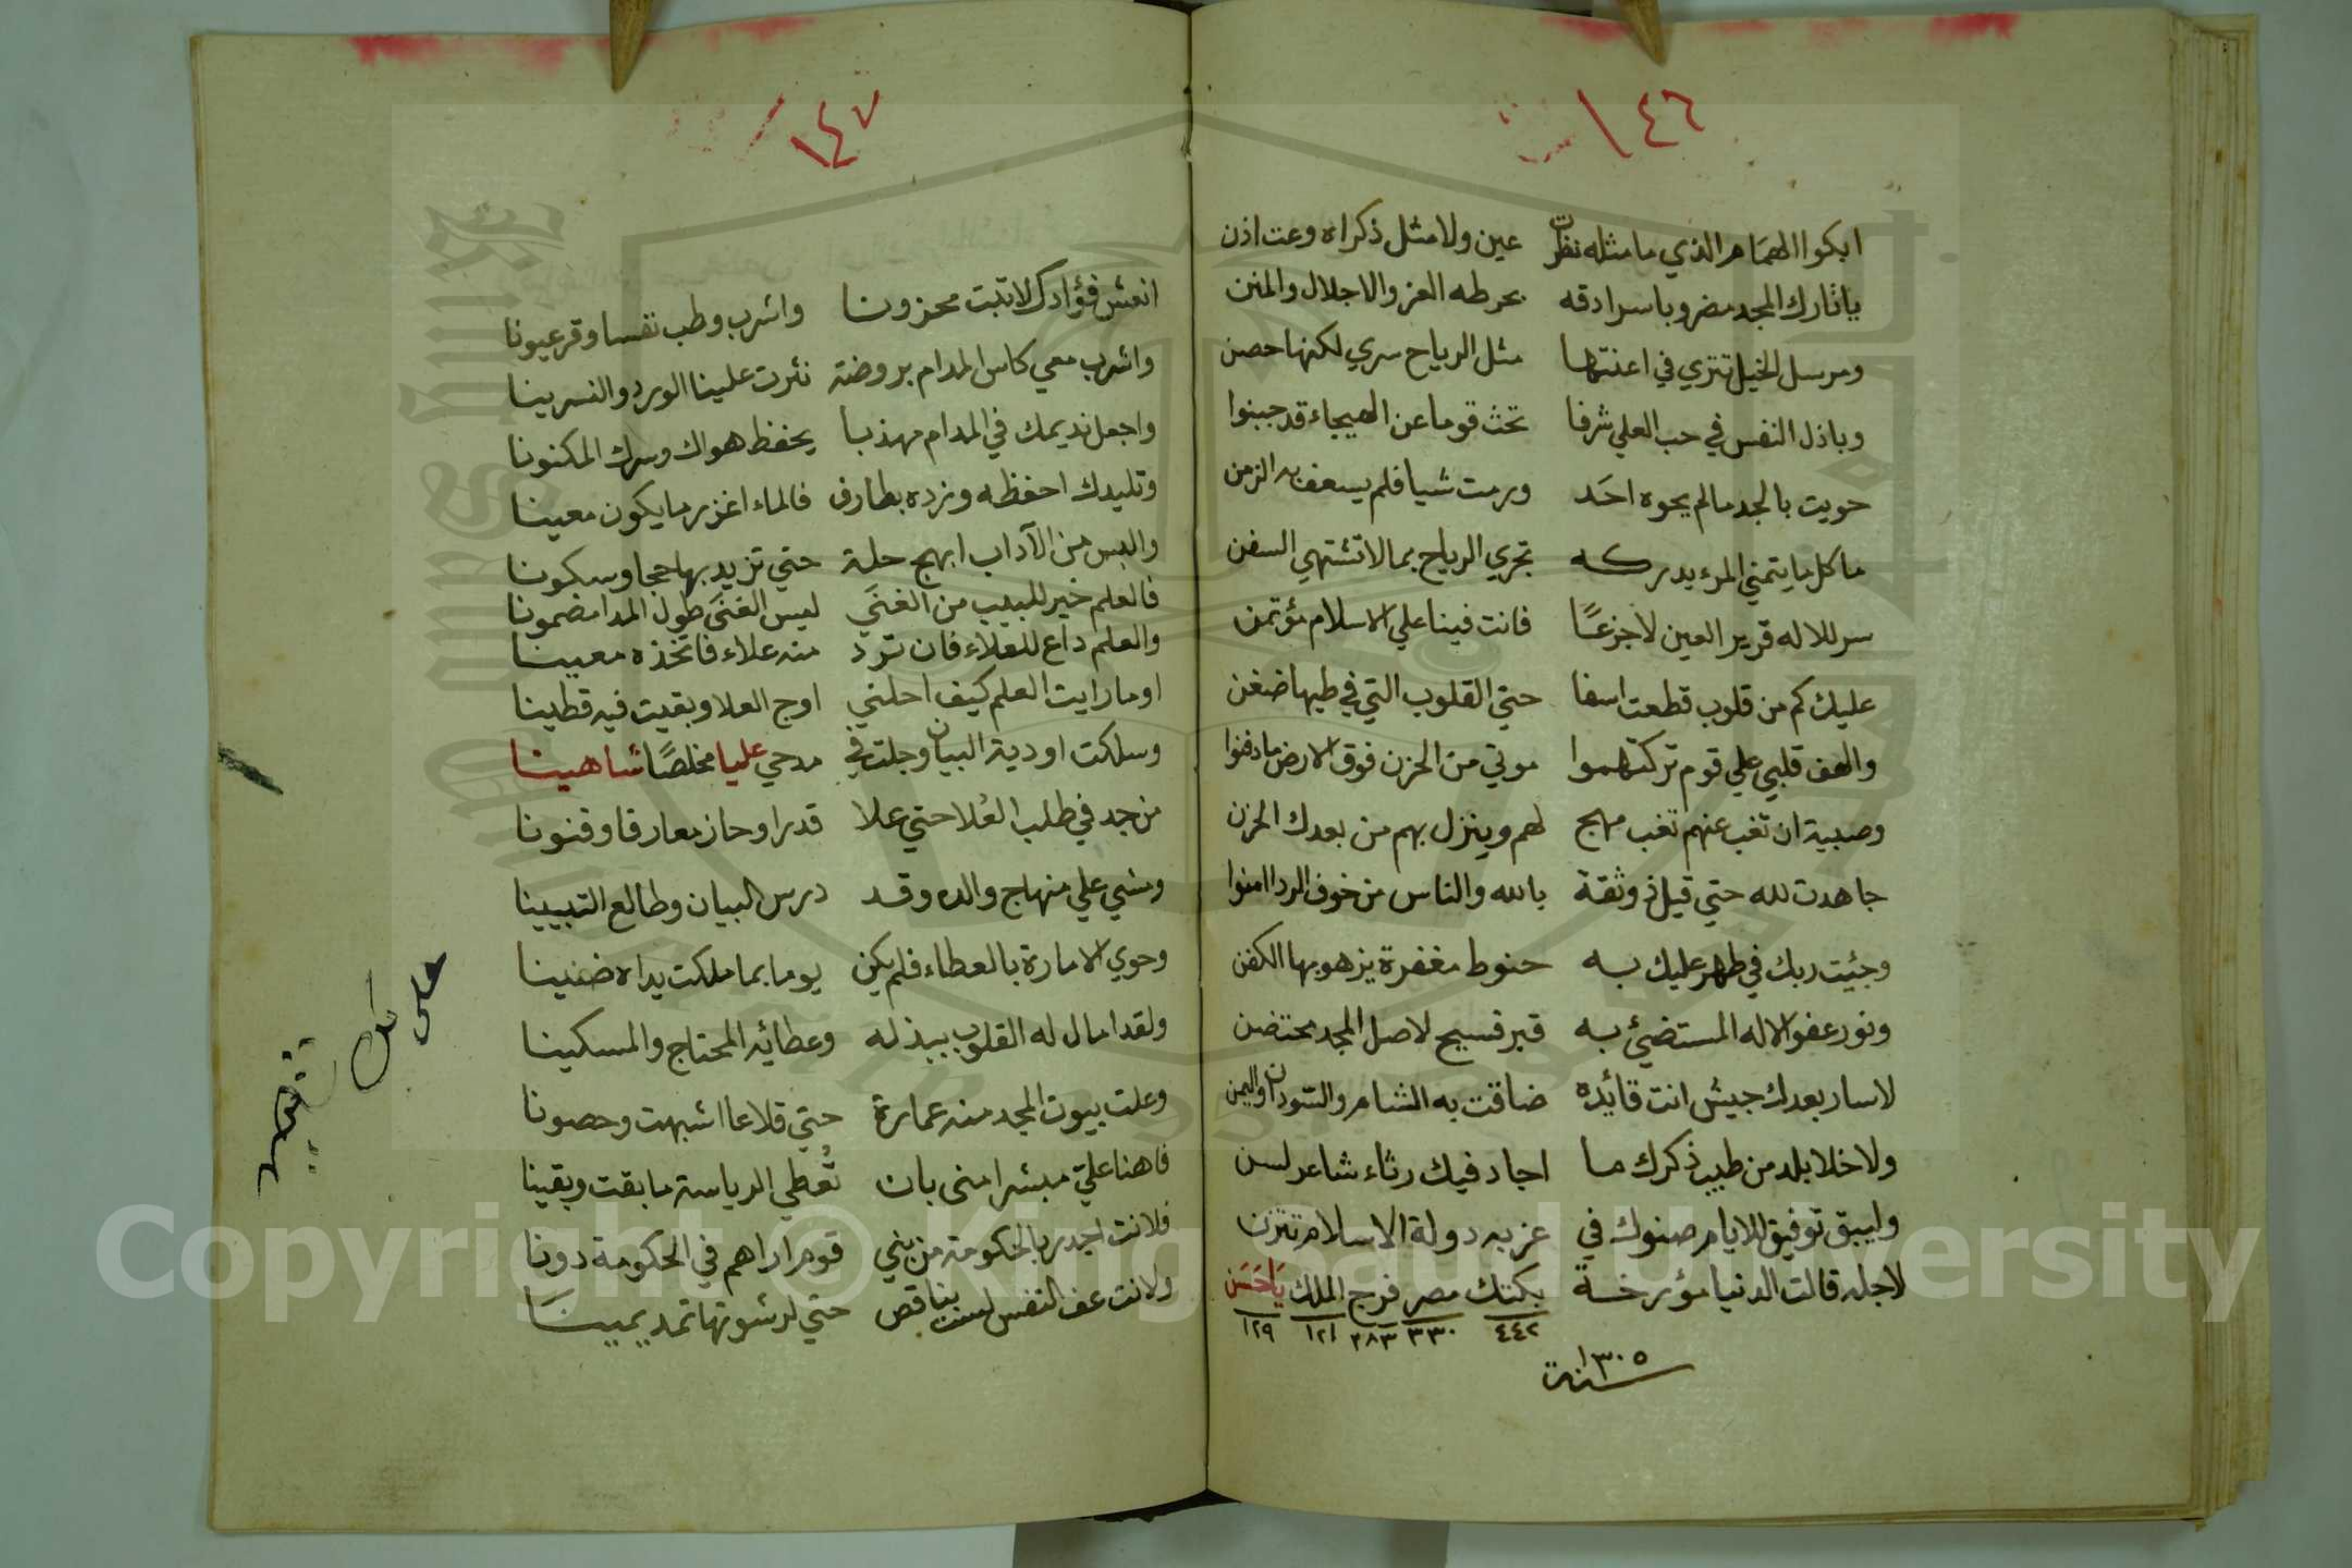 ١٤٦
ابكوا الهمام الذي ما مثله نظرت عين ولا مثل ذكراه وعت اذن
يا تارك المجد مضروبا سرادقه بحر طه العز والاجلال والمنن
ومرسل الخيل تنزي في اعنتها مثل الرياح سري لكنها حصن
وباذل النفس في حب العلي شرفا تحث قوما عن الهيجاء قد جبنوا
حويت بالجد مالم يحوه احد ورمت شيا فلم يسعف به الزمن
ما كل ما يتمني المرء يدركه تجري الرياح بما لا تشتهي السفن
سر للاله قرير العين لا جزعًا فانت فينا علي الاسلام مؤتمن
عليك كم من قلوب قطعت اسفا حتي القلوب التي في طيها ضغن
والهف قلبي علي قوم تركتهموا موتي من الحزن فوق الارض ما دفنوا
وصبية ان تغب عنهم تغب مهج لهم وينزل بهم من بعدك الحزن
جاهدت لله حتي قيل ذو ثقة بالله والناس من خوف الردا امنوا
وجئيت ربك في طهر عليك به حنوط مغفرة يزهو بها الكفن
ونور عفو الاله المستضيئ به قبر فسيح لاصل المجد محتضن
لا سار بعدك جيش انت قائده ضاقت به الشام والسودان واليمن
ولا خلا بلد من طيب ذكرك ما اجاد فيك رثاء شاعر لسن
وليبق توفيق للايام صنوك في عز به دولة الاسلام تتزن
لاجله قالت الدنيا مؤرخة بكتك مصر فرج الملك يا حسن
٤٤٢ ٣٣٠ ٢٨٣ ١٢١ ١٢٩
سنة ١٣٠٥
١٤٧
انعش فؤادك لا تبت محزونا واشرب وطب نفسا وقر عيونا
واشرب معي كاس المدام بروضة نثرت علينا الورد والنسرينا
واجعل نديمك في المدام مهذبا يحفظ هواك وسرك المكنونا
وتليدك احفظه وزده بطارف فالماء اغزر ما يكون معينا
والبس من الآداب ابهج حلة حتي تزيد بها حجا وسكونا
فالعلم خير للبيب من الغني ليس الغني طول المدا مضمونا
والعلم داع للعلاء فان ترد منه علاء فاتخذه معينا
او ما رايت العلم كيف احلني اوج العلا وبقيت فيه قطينا
وسلكت اودية البيان وجلت في مدحي عليا مخلصًا شاهينا
من جد في طلب العُلا حتي علا قدرا وحاز معارفا وفنونا
ومشي علي منهاج والده وقد درس البيان وطالع التبيينا
وحوي الامارة بالعطاء فلم يكن يوما بما ملكت يداه ضنينا
ولقد امال له القلوب ببذله وعطائه المحتاج والمسكينا
وعلت بيوت المجد منه عمارة حتي قلاعا اشبهت وحصونا
فاهنا عليّ مبشرا مني بان تُعطي الرياسة ما بقت وبقينا
فلانت اجدر بالحكومة من بني قوم اراهم في الحكومة دونا
ولانت عف النفس لست بناقص حتي لرشوتها تمد يمينا
على كل